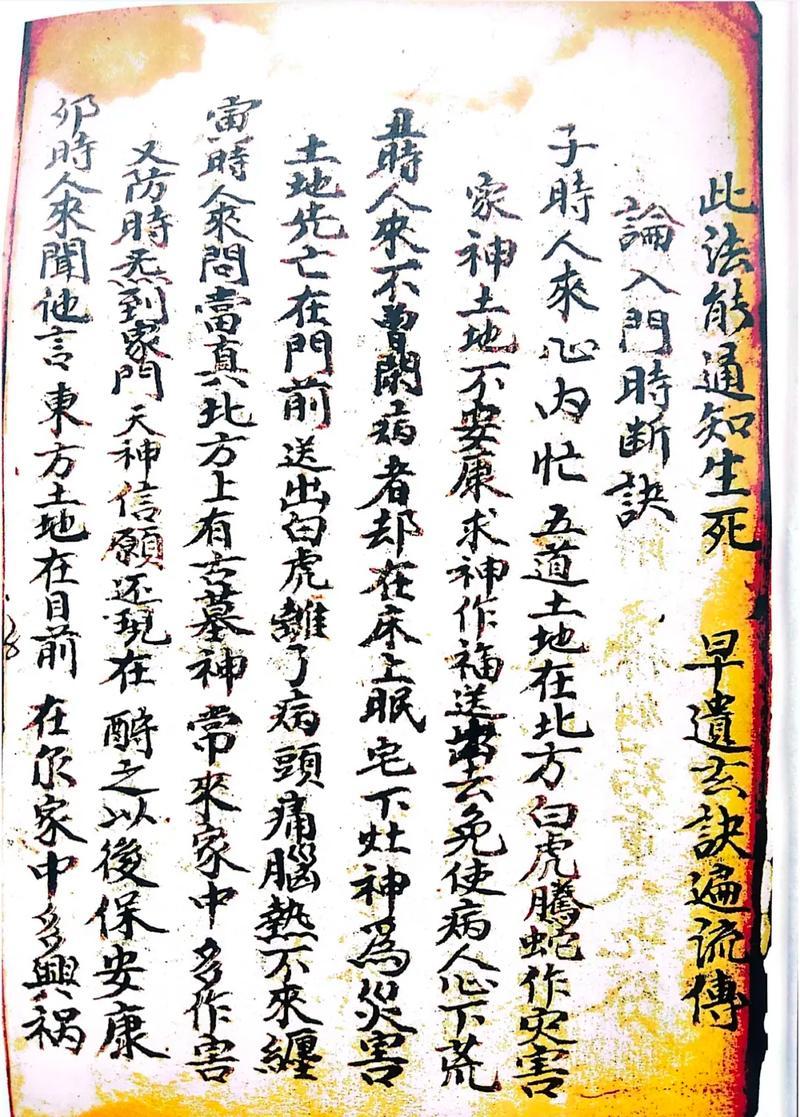 此法能通知生死 早遺玄訣遍流傳
論入門時断訣
子時人來心內忙 五道土地在北方 白虎騰蛇作灾害
家神土地不安康 求神作福送出去 免使病人心下慌
丑時人來不曽閑 病者却在床上眠 宅下灶神為災害
土地先亡在門前 送出白虎離了病 頭痛腦熱不來纏
寅時人來問當真 北方上有古墓神 常來家中多作害
又防時炁到家門 天神信願还現在 酧之以後保安康
卯時人來聞他言 東方土地在目前 在尔家中多興祸